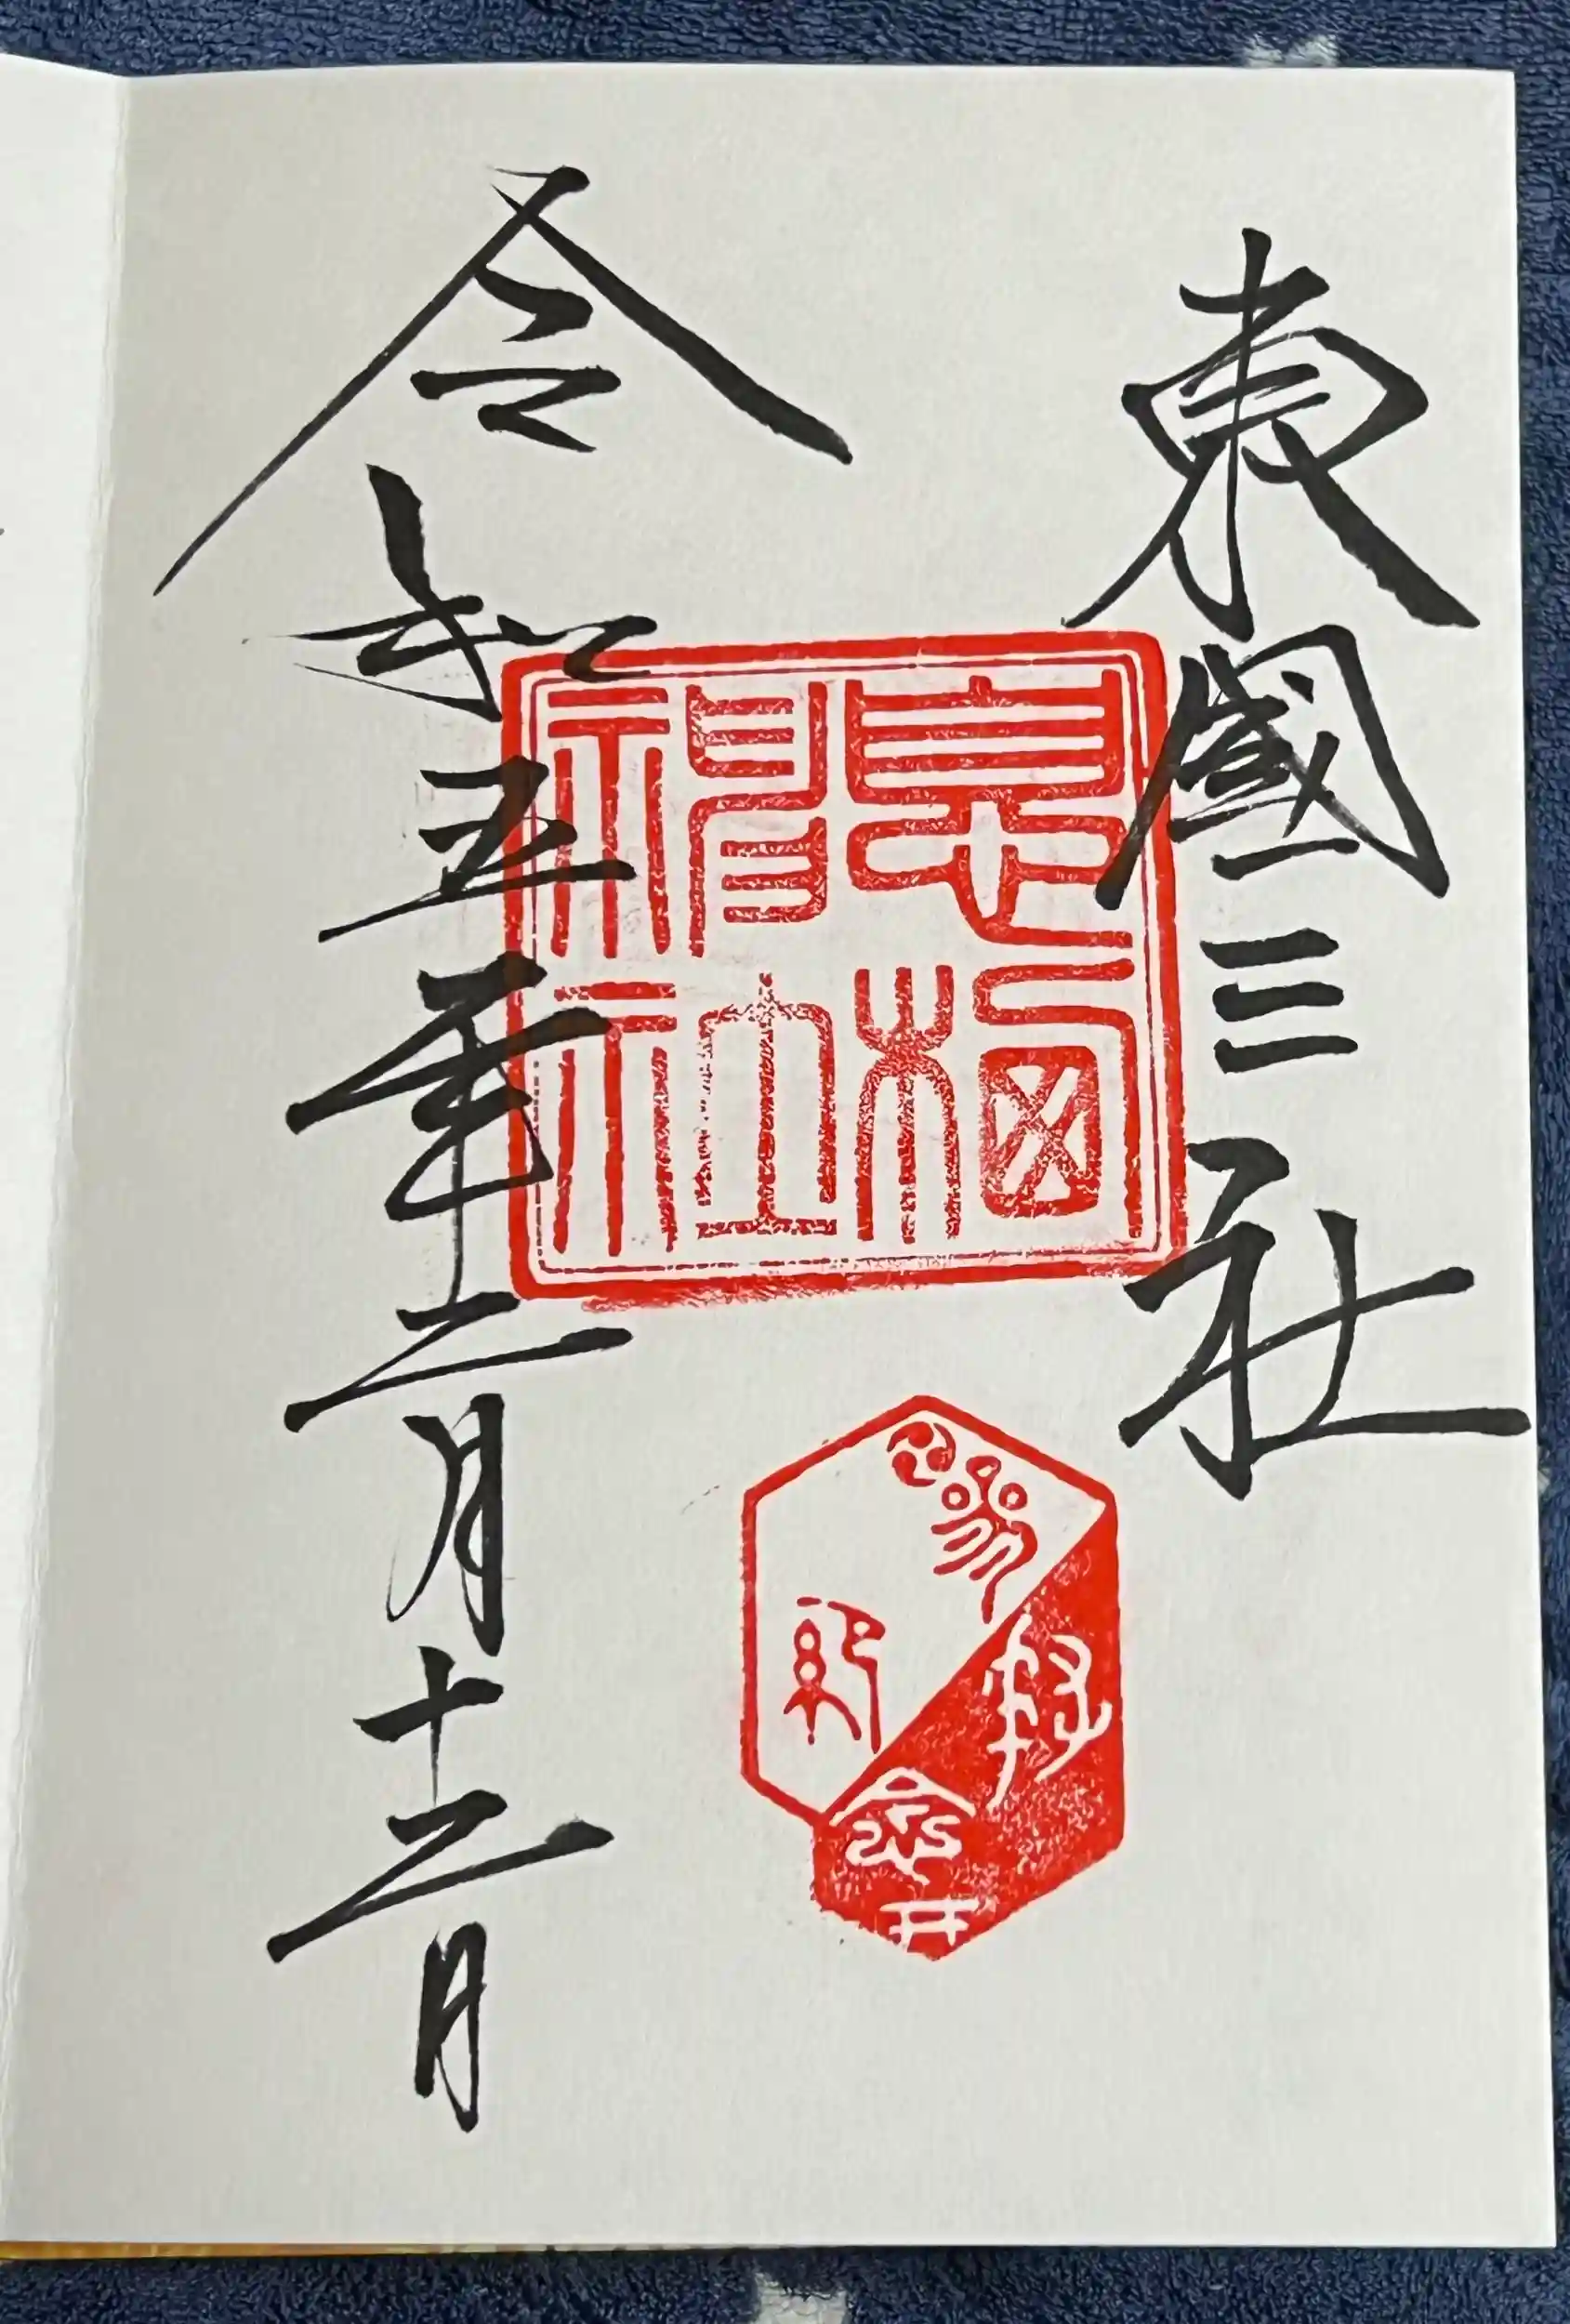 東國三社
息栖神社
令和五年二月十二日